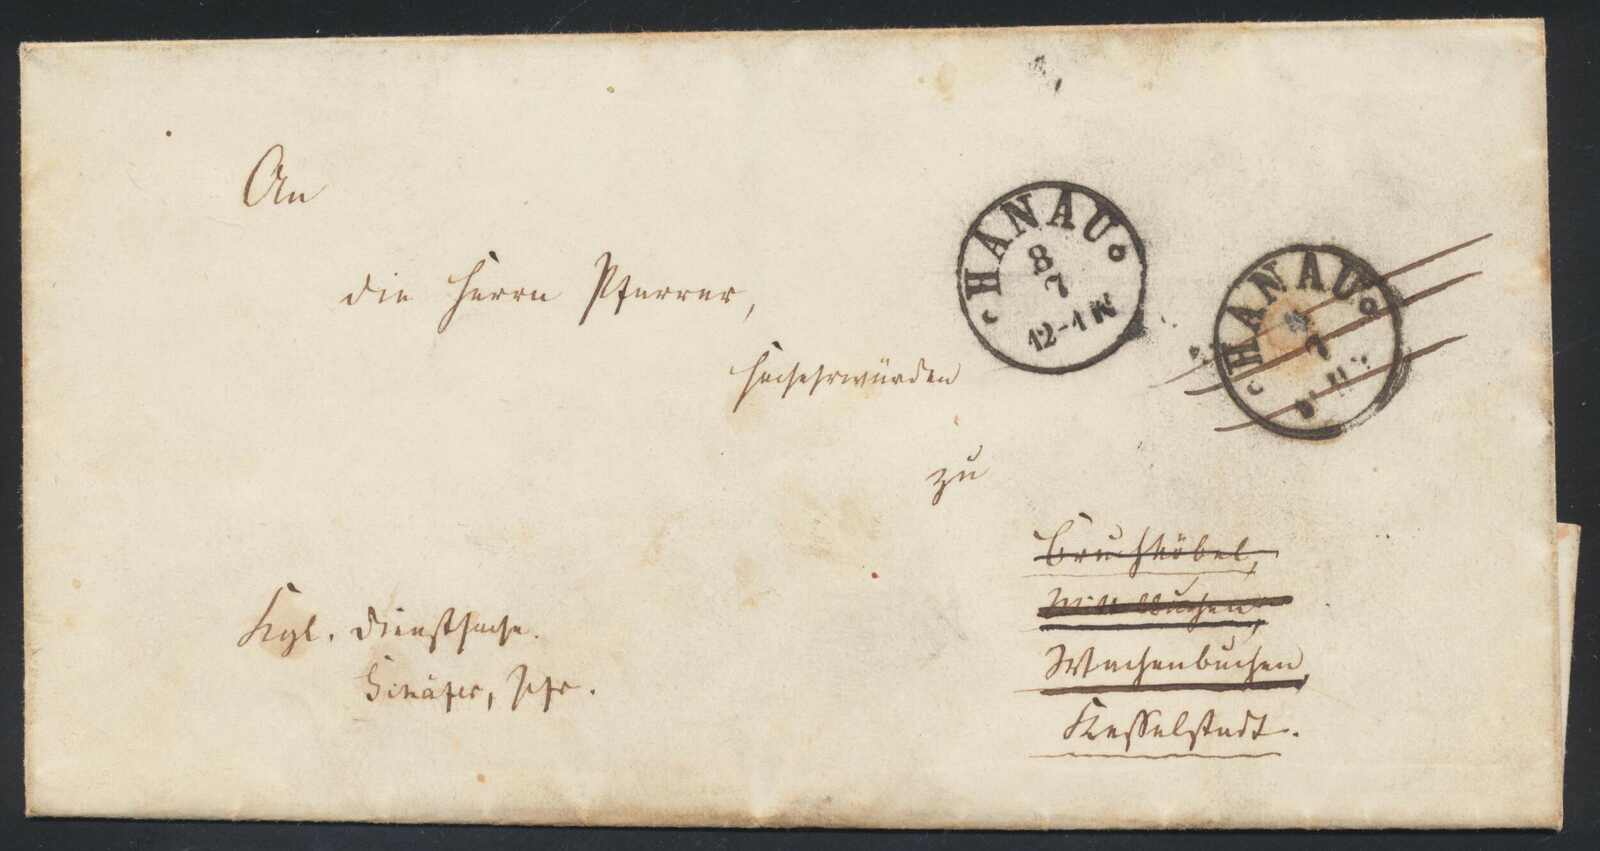 An
die Herrn Pfarrer,
Hochehrwürden
zu
Bruchköbel,
Mittelbuchen,
Wachenbuchen,
Kesselstadt.
Kgl. Dienstsache.
Schäfer, Pfr.
HANAU
8
7
12-1 N
HANAU
7